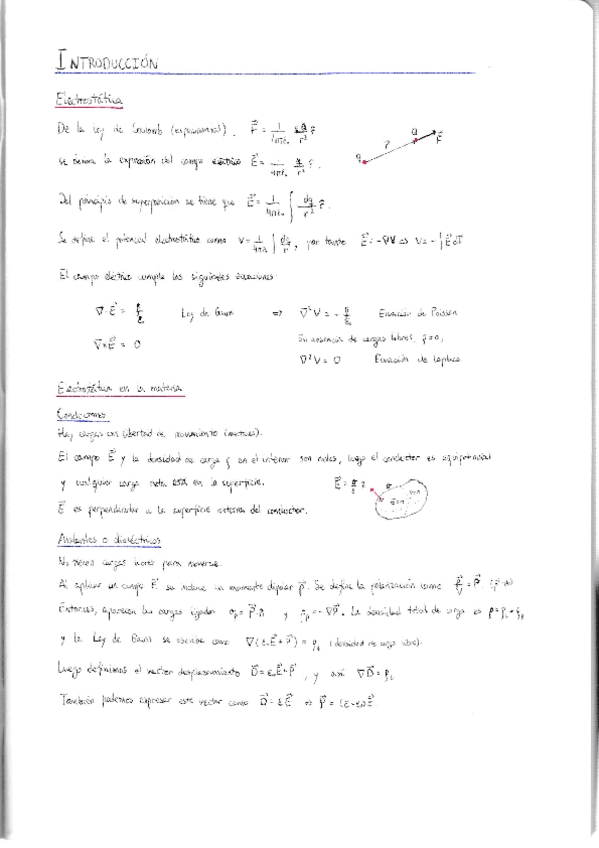 INTRODUCCIÓN
Electrostática
De la Ley de Coulomb (experimental), F⃗ = 1/4πε₀ qQ/r² r̂
se obtiene la expresión del campo eléctrico E⃗ = 1/4πε₀ q/r² r̂.
q r⃗ Q F⃗
Del principio de superposición se tiene que E⃗ = 1/4πε₀ ∫ dq/r² r̂.
Se define el potencial electrostático como V = 1/4πε₀ ∫ dq/r, por tanto E⃗ = -∇V ⇔ V = -∫ E⃗ dl⃗
El campo eléctrico cumple las siguientes ecuaciones:
∇·E⃗ = ρ/ε₀ Ley de Gauss ⇒ ∇²V = -ρ/ε₀ Ecuación de Poisson
∇×E⃗ = 0 En ausencia de cargas libres, ρ=0,
∇²V = 0 Ecuación de Laplace
Electrostática en la materia
Conductores
Hay cargas con libertad de movimiento
El campo E⃗ y la densidad de carga ρ en el interior son nulos, luego el conductor es equipotencial
y cualquier carga neta está en la superficie. E⃗ = σ/ε₀
E⃗ es perpendicular a la superficie externa del conductor.
Aislantes o dieléctricos
No tienen cargas libres para moverse.
Al aplicar un campo E⃗ se induce un momento dipolar p⃗. Se define la polarización como p⃗/V = P⃗
Entonces, aparecen las cargas ligadas σp = P⃗·n y ρp = -∇P⃗. La densidad total de carga es ρ = ρL + ρp
y la Ley de Gauss se escribe como ∇(ε₀E⃗ + P⃗) = ρL (densidad de carga libre).
Luego definimos el vector desplazamiento D⃗ = ε₀E⃗ + P⃗, y así ∇D⃗ = ρL
También podemos expresar este vector como D⃗ = εE⃗ ⇒ P⃗ = (ε-ε₀)E⃗.